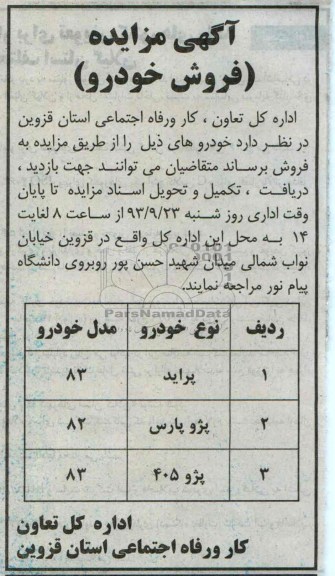 آگهی مزایده
(فروش خودرو)
اداره کل تعاون ، کار ورفاه اجتماعی استان قزوین
در نظر دارد خودرو های ذیل را از طریق مزایده به
فروش برساند متقاضیان می توانند جهت بازدید ،
دریافت ، تکمیل و تحویل اسناد مزایده تا پایان
وقت اداری روز شنبه ۹۳/۹/۲۳ از ساعت ۸ لغایت
۱۴ به محل این اداره کل واقع در قزوین خیابان
نواب شمالی میدان شهید حسن پور روبروی دانشگاه
پیام نور مراجعه نمایند.
ParsNamadData
ردیف نوع خودرو مدل خودرو
۱ پراید ۸۳
۲ پژو پارس ۸۲
۳ پژو ۴۰۵ ۸۳
اداره کل تعاون
کار ورفاه اجتماعی استان قزوین